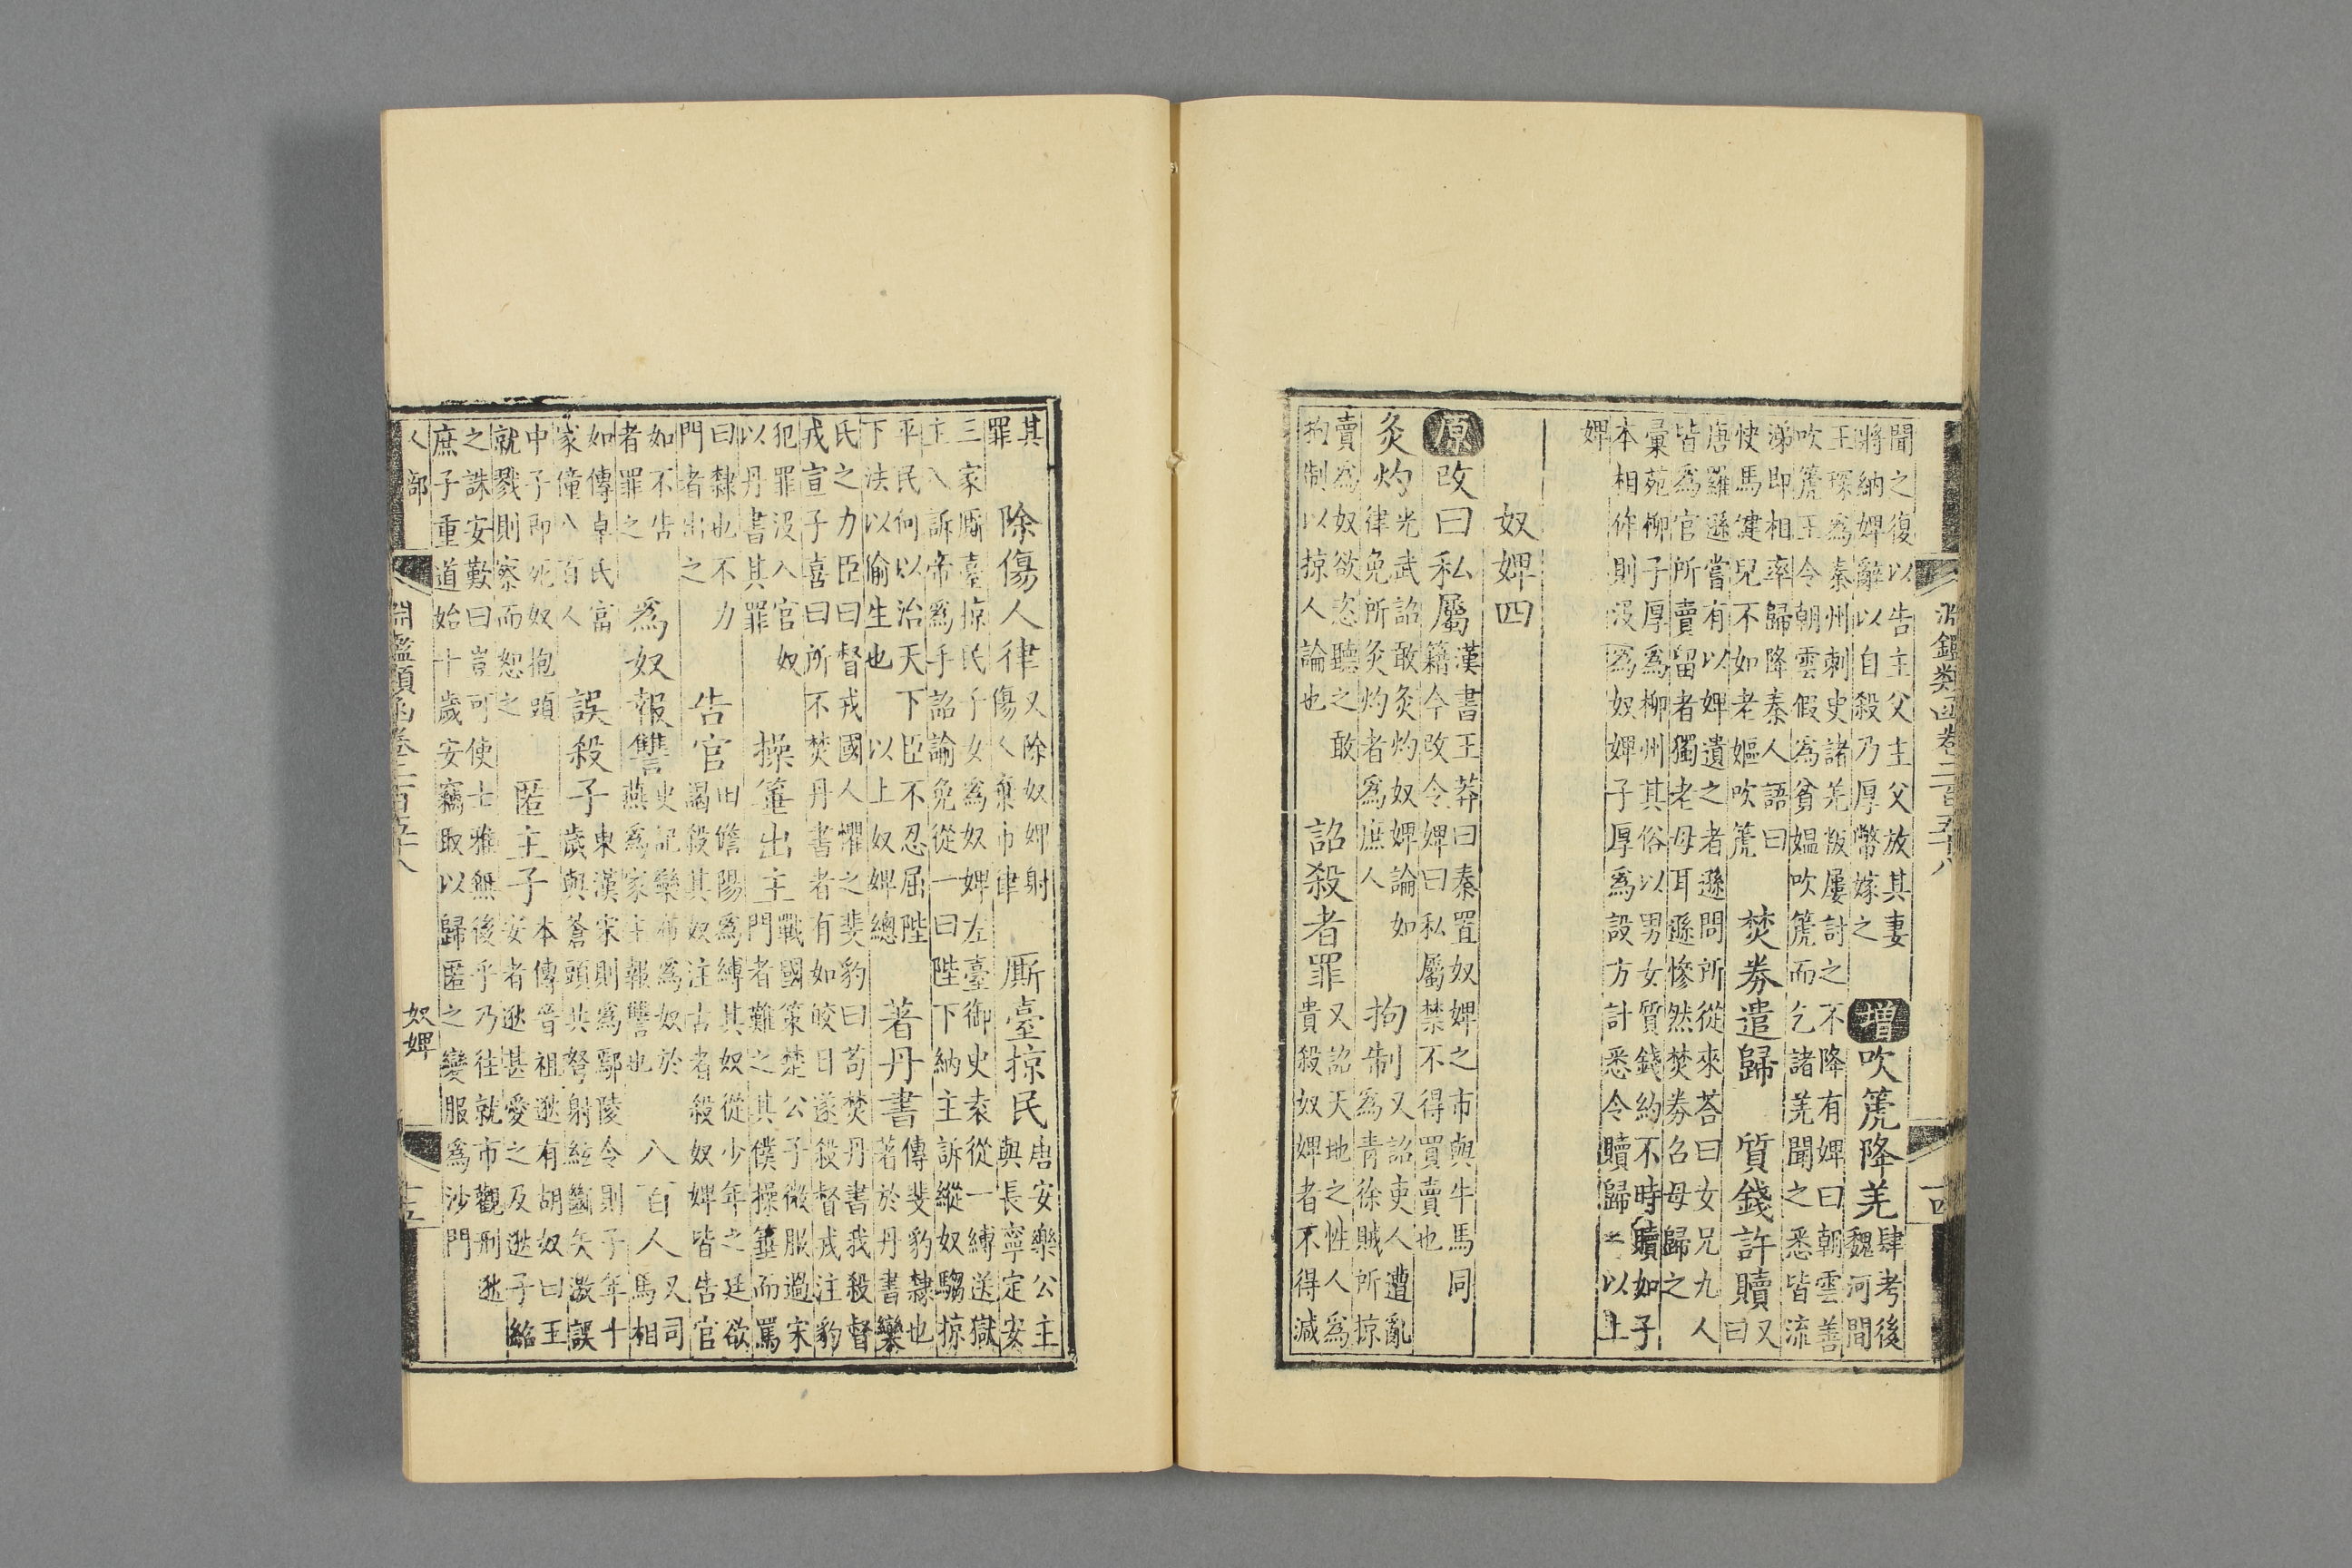 淵鑑類函卷二百五十八
十四
聞之復以告主父主父放其妻
將納婢辭以自殺乃厚幣嫁之
增吹篪降羌
肆考後
魏河間
王琛爲秦州刺史諸羌叛屢討之不降有婢曰朝雲善
吹篪王令朝雲假爲貧媼吹篪而乞諸羌聞之悉皆流
涕即相率歸降秦人語曰
快馬健兒不如老嫗吹篪
焚券遣歸
質錢許贖
又
曰
唐羅遜嘗有以婢遺之者遜問所從來荅曰女兄九人
皆爲官所賣留者獨老母耳遜慘然焚券召母歸之
彙苑柳子厚爲柳州其俗以男女質錢約不時贖如子
本相侔則沒爲奴婢子厚爲設方計悉令贖歸 以上
婢
奴婢四
原改曰私屬
漢書王莽曰秦置奴婢之市與牛馬同
籍今改令婢曰私屬禁不得買賣也
灸灼
光武詔敢灸灼奴婢論如
律免所灸灼者爲庶人
拘制
又詔吏人遭亂
爲青徐賊所掠
賣爲奴欲恣聽之敢
拘制以掠人論也
詔殺者罪
又詔天地之性人爲
貴殺奴婢者不得減
其
罪
除傷人律
又除奴婢射
傷人棄市律
厮臺掠民
唐安樂公主
與長寧定安
三家厮臺掠民子女爲奴婢左臺御史袁從一縛送獄
主入訴帝爲手詔論免從一曰陛下納主訴縱奴騶掠
平民何以治天下臣不忍屈陛
下法以偷生也 以上奴婢總
著丹書
傳斐豹隸也
著於丹書欒
氏之力臣曰督戎國人懼之斐豹曰苟焚丹書我殺督
戎宣子喜曰所不焚丹書者有如皎日遂殺督戎注豹
犯罪沒入官奴
以丹書其罪
操箠出主
戰國策楚公子微服過宋
門者難之其僕操箠而罵
曰隸也不力
門者出之
告官
田儋陽爲縛其奴從少年之廷欲
謁殺其奴注古者殺奴婢皆告官
如不告
者罪之
爲奴報讐
史記欒布爲奴於
燕爲家主報讐也
八百人
又司
馬相
如傳卓氏富
家僮八百人
誤殺子
東漢宋則爲鄢陵令則子年十
歲與蒼頭共弩射絃斷矢激誤
中子即死奴抱頭
就戮則察而恕之
匿主子
本傳晉祖逖有胡奴曰王
安者逖甚愛之及逖子紿
之誅安歎曰豈可使士雅無後乎乃往就市觀刑逖
庶子重道始十歲安竊取以歸匿之變服爲沙門
人部
淵鑑類函卷二百五十八
奴婢
十五